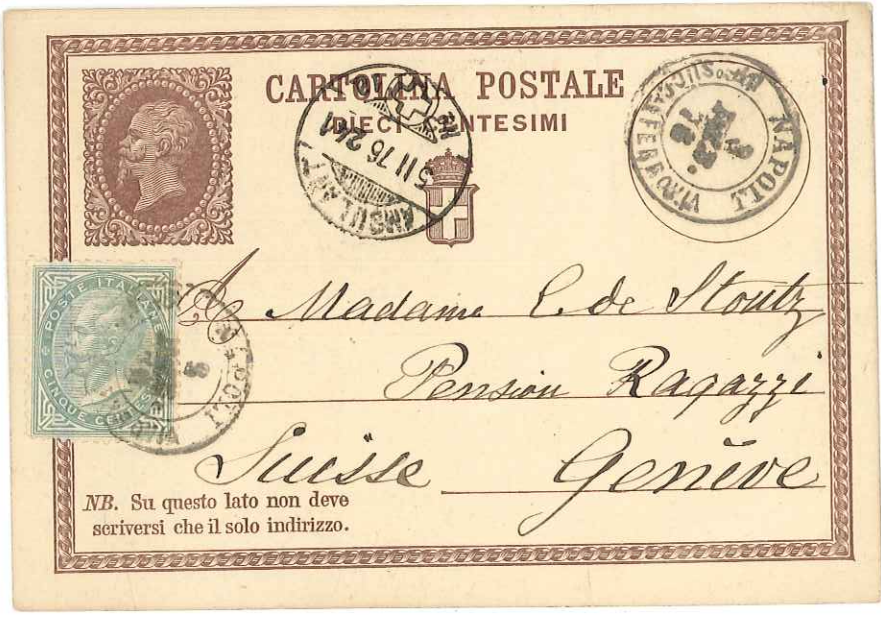 CARTOLINA POSTALE
DIECI CENTESIMI
5 II 76
NAPOLI
FEB.
76
POSTE ITALIANE
CINQUE CENTESIMI
NAPOLI
A Madame E. de Stoutz
Pension Ragazzi
Suisse Genève
NB. Su questo lato non deve
scriversi che il solo indirizzo.